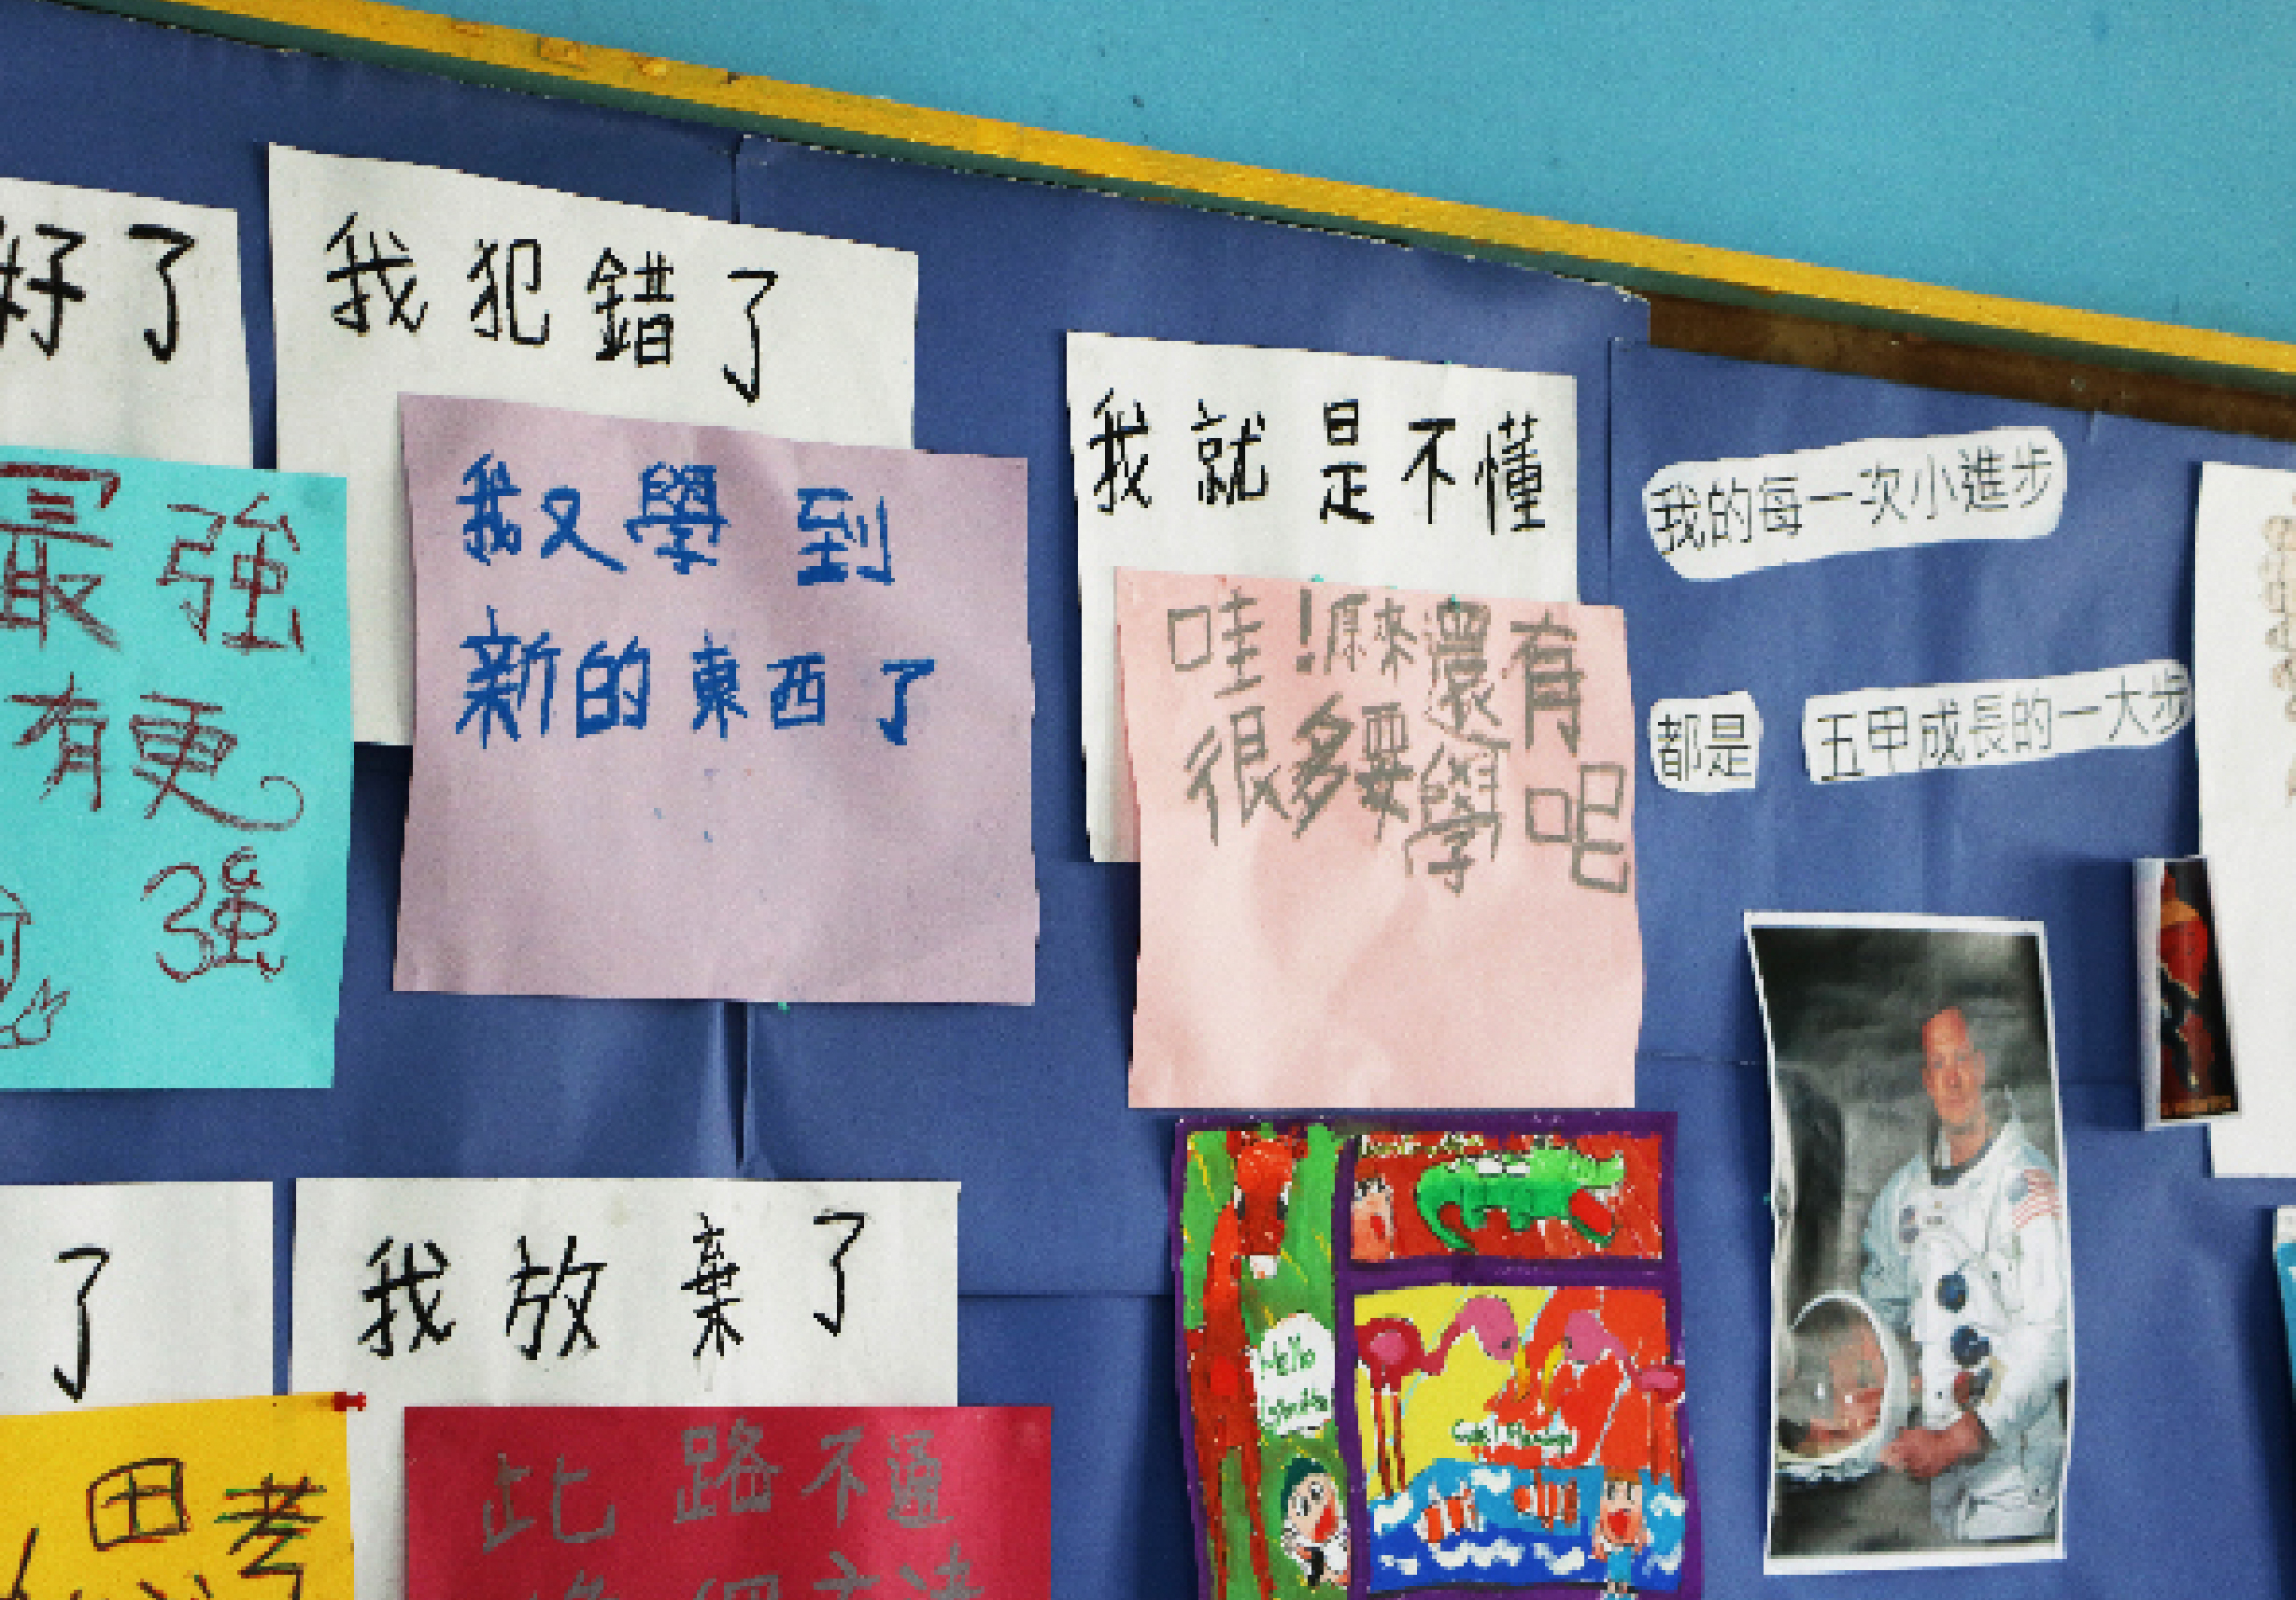 好了
最強
有更
強
我犯錯了
我又學到
新的東西了
我就是不懂
哇!原來還有
很多要學呢
我的每一次小進步
都是 五甲成長的一大步
了
思考
我放棄了
此路不通
Hello